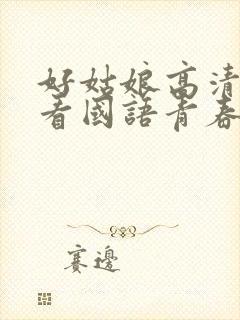 好姑娘高清
看國語青春
賽邊